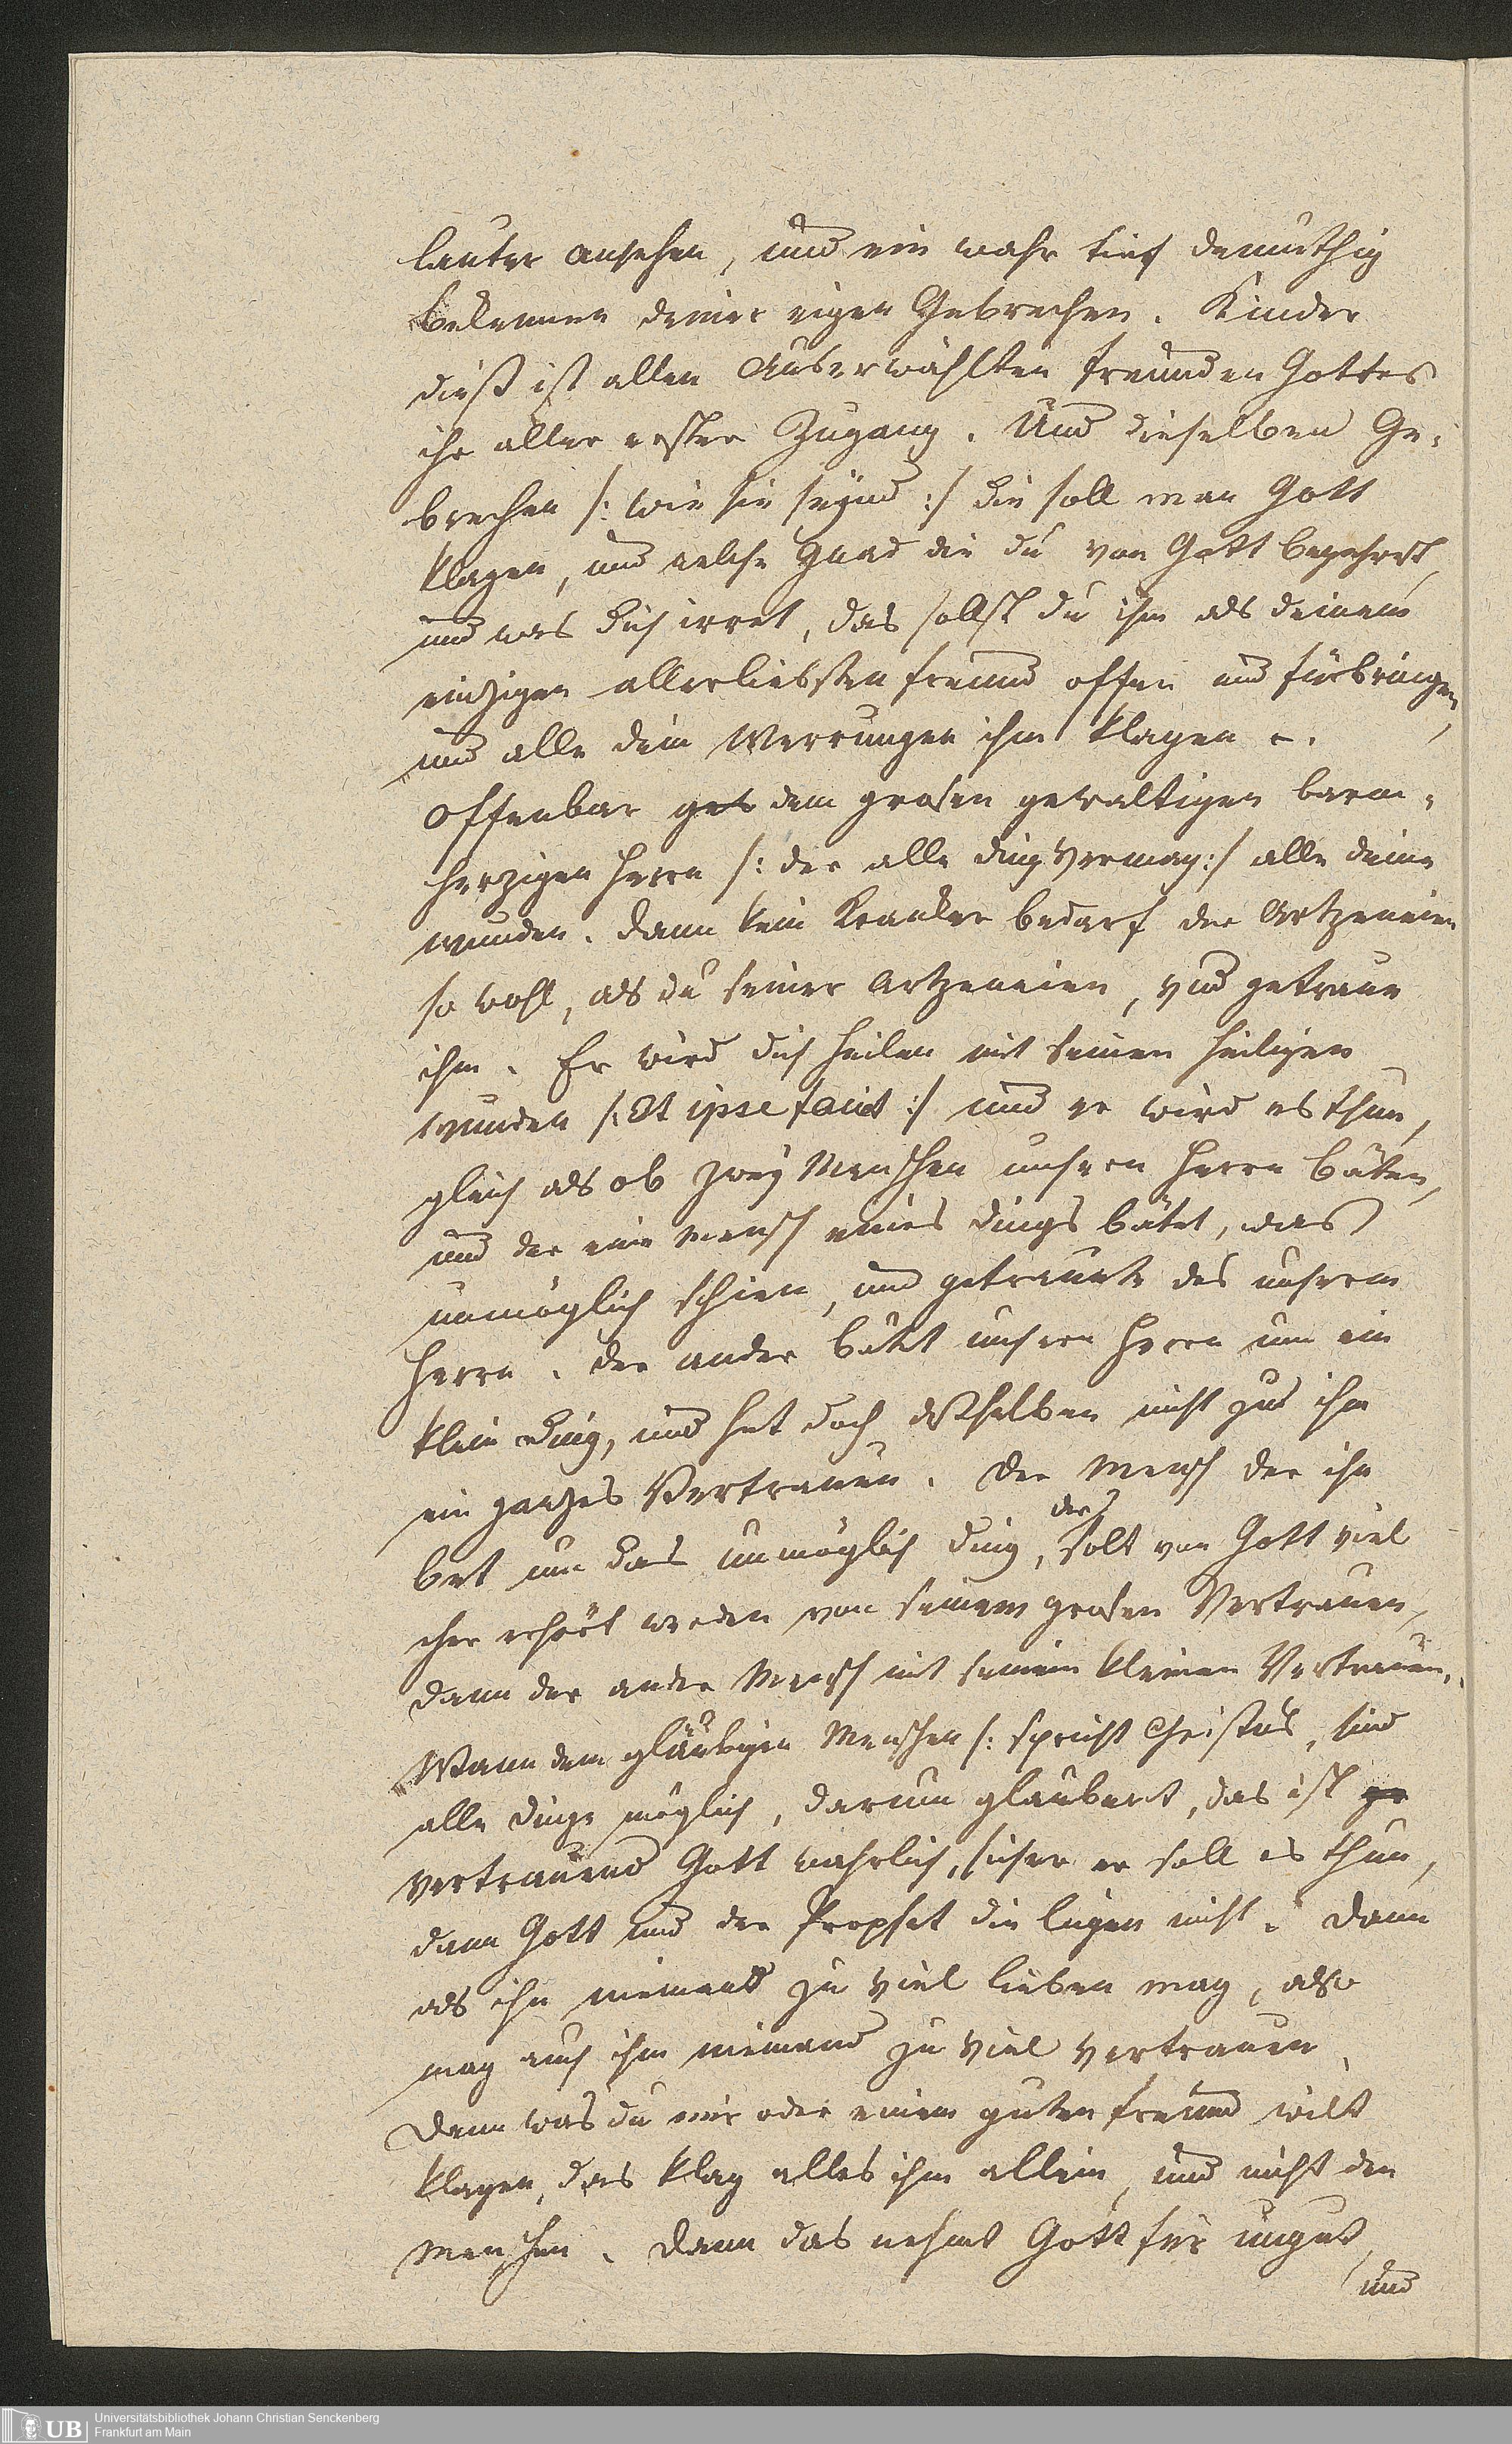 lauter ansehen, und ein wahr tief demüthig
Bekennen deiner eigen Gebrechen. Kinder
dieß ist allen Auserwählten freunden Gottes
ihr aller erster Zugang. Und dieselben Ge-
brechen /: wie sie seynd :/ die soll man Gott
klagen, und welche Gnad die du von Gott begehrest,
und was dich irret, das sollst du ihm als deinem
einzigen allerliebsten freund offen und fürbringen,
und alle dein Werrungen ihm klagen
offenbar dem grosen gewaltigen barm-
herzigen Herrn /: der alle ding vermag :/ alle deine
wunden. dann kein Kranker bedarf der Artzeneien
so wohl, als du seiner Artzeneien, und getraue
ihm. Er wird dich heilen mit seinen heiligen
wunden /: Et ipse faciet :/ und er wird es thun,
gleich als ob zwey Menschen unsern Herrn bäten,
und der eine Mensch eines dings bätet, das
unmöglich schien, und getraute des unserm
Herrn. der ander bätet unsern Herrn um ein
klein ding, und het doch desselben nicht zu ihm
ein ganzes Vertrauen. Der Mensch der ihn
der
bet um das unmöglich ding, solt von Gott viel
eher erhört werden von seinem grosen Vertrauen,
dann der ander Mensch mit seinem kleinen Vertrauen.
Wann dem gläubigen Menschen /: spricht Christus, sind
alle dinge möglich, darum glaubert, das ist
vertrauend Gott wahrlich, sicher er soll es thun,
dann Gott und der Prophet die lügen nicht. Dann
als ihn niemand zu viel lieben mag, also
mag auch ihm niemand zu viel vertrauen.
Dann was du mir oder einem guten freund wilt
klagen, das klag alles ihm allein, und nicht den
Menschen. dann das nehmet Gott für ungut,
und
UB
Universitätsbibliothek Johann Christian Senckenberg
Frankfurt am Main